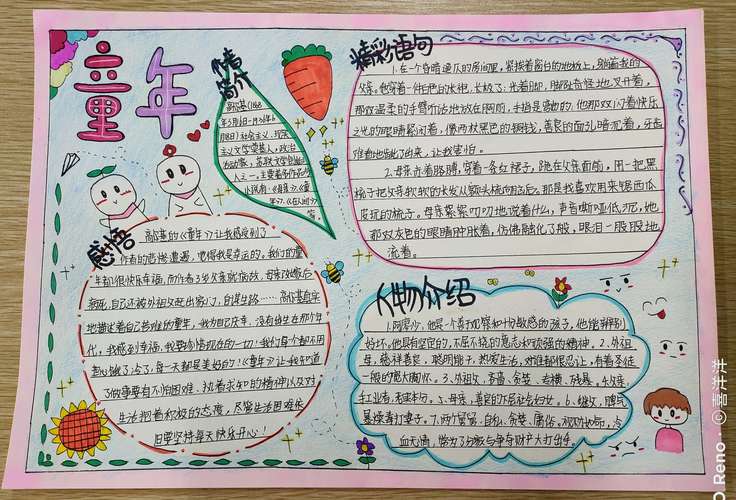 童年
作者
简介
高尔基(1868
年3月16日-1936年6
月18日)社会主义、现实
主义文学奠基人,政治
活动家,苏联文学创始
人之一,主要著作
小说有:《母亲》、《童
年》、《在人间》
等。
精彩语句
1.在一个昏暗
的房间里,紧挨着窗台的地板上,躺着我的
父亲。他穿着一件白色的衣
光着脚,脚趾奇怪地叉开着,
那双温柔的手臂
地放在胸前,手指是弯曲的。他那双闪着快乐
之光的眼睛紧闭着,像两枚黑色的铜钱,善良的面孔暗沉着,牙齿
难看地龇了出来,让我害怕。
2.母亲赤着胳膊,穿着一条红裙子,跪在父亲面前,用一把黑
梳子把父亲软软的长发从额头梳向脑后,那是我喜欢用来锯西瓜
皮玩的梳子,母亲絮絮叨叨地说着什么,声音嘶哑低沉,她
那双灰色的眼睛肿胀着,仿佛融化了般,眼泪一股股地
流着。
感悟
高尔基的《童年》让我感受到了
作者的悲惨遭遇,觉得我是幸运的。我们的童
年都很快乐幸福,而作者3岁父亲就病故,母亲改嫁后
病死,自己还被外祖父赶出家门,自谋生路……高尔基真实
地描述着自己苦难的童年,我为自己庆幸,没有诞生在那个年
代,我感到幸福,我要珍惜现在的一切!我们每个都不用
担心饿了、冷了,每一天都是美好的!《童年》让我知道
了做事要有不怕困难、执着求知的精神以及对
生活抱着积极的态度,尽管生活困难依
旧要坚持每天快乐开心!
人物介绍
1.阿廖沙,他是一个善于观察和十分敏感的孩子,他能辨别
好坏。他具有坚定的,不屈不挠的意志和顽强的精神。2.外祖
母,慈祥善良,聪明能干,热爱生活,对谁都很忍让,有着圣徒
一般的宽大胸怀。3.外祖父,吝啬、贪婪、专横、残暴。4.
工业者,老
5.母亲,善良的
妇女。6.继父,脾气
暴躁毒打妻子。7.两个舅舅,自私、贪婪、庸俗、
,冷
血无情,常为了分家与争夺财产大打出手。
O Reno
©喜洋洋